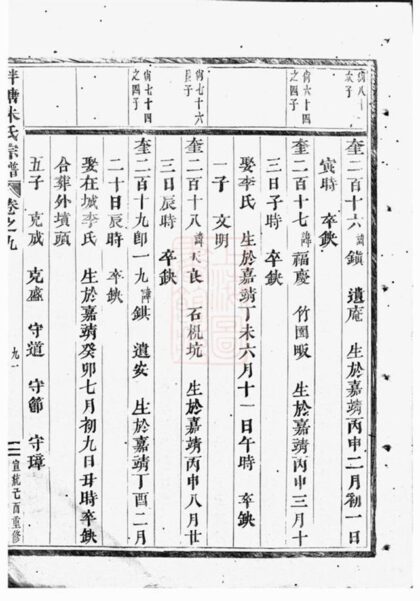 俏八十
次子
奎二百十六 諱鎮 遺庵 生於嘉靖丙申二月初一日
寅時 卒缺
俏六十四
之四子
奎二百十七 諱福慶 竹園畈 生於嘉靖丙申三月十
三日子時 卒缺
娶李氏 生於嘉靖丁未六月十一日午時 卒缺
一子 文明
俏七十六
長子
奎二百十八 諱天良 石梘坑 生於嘉靖丙申八月廿
三日辰時 卒缺
俏七十四
之四子
奎二百十九郎一九 諱鉷 遺安 生於嘉靖丁酉二月
二十日辰時 卒缺
娶在城李氏 生於嘉靖癸卯七月初九日丑時卒缺
合葬外墳頭
五子 克戒 克盛 守道 守節 守璋
泮塘朱氏宗譜 卷之九
九一
宣統己酉重修